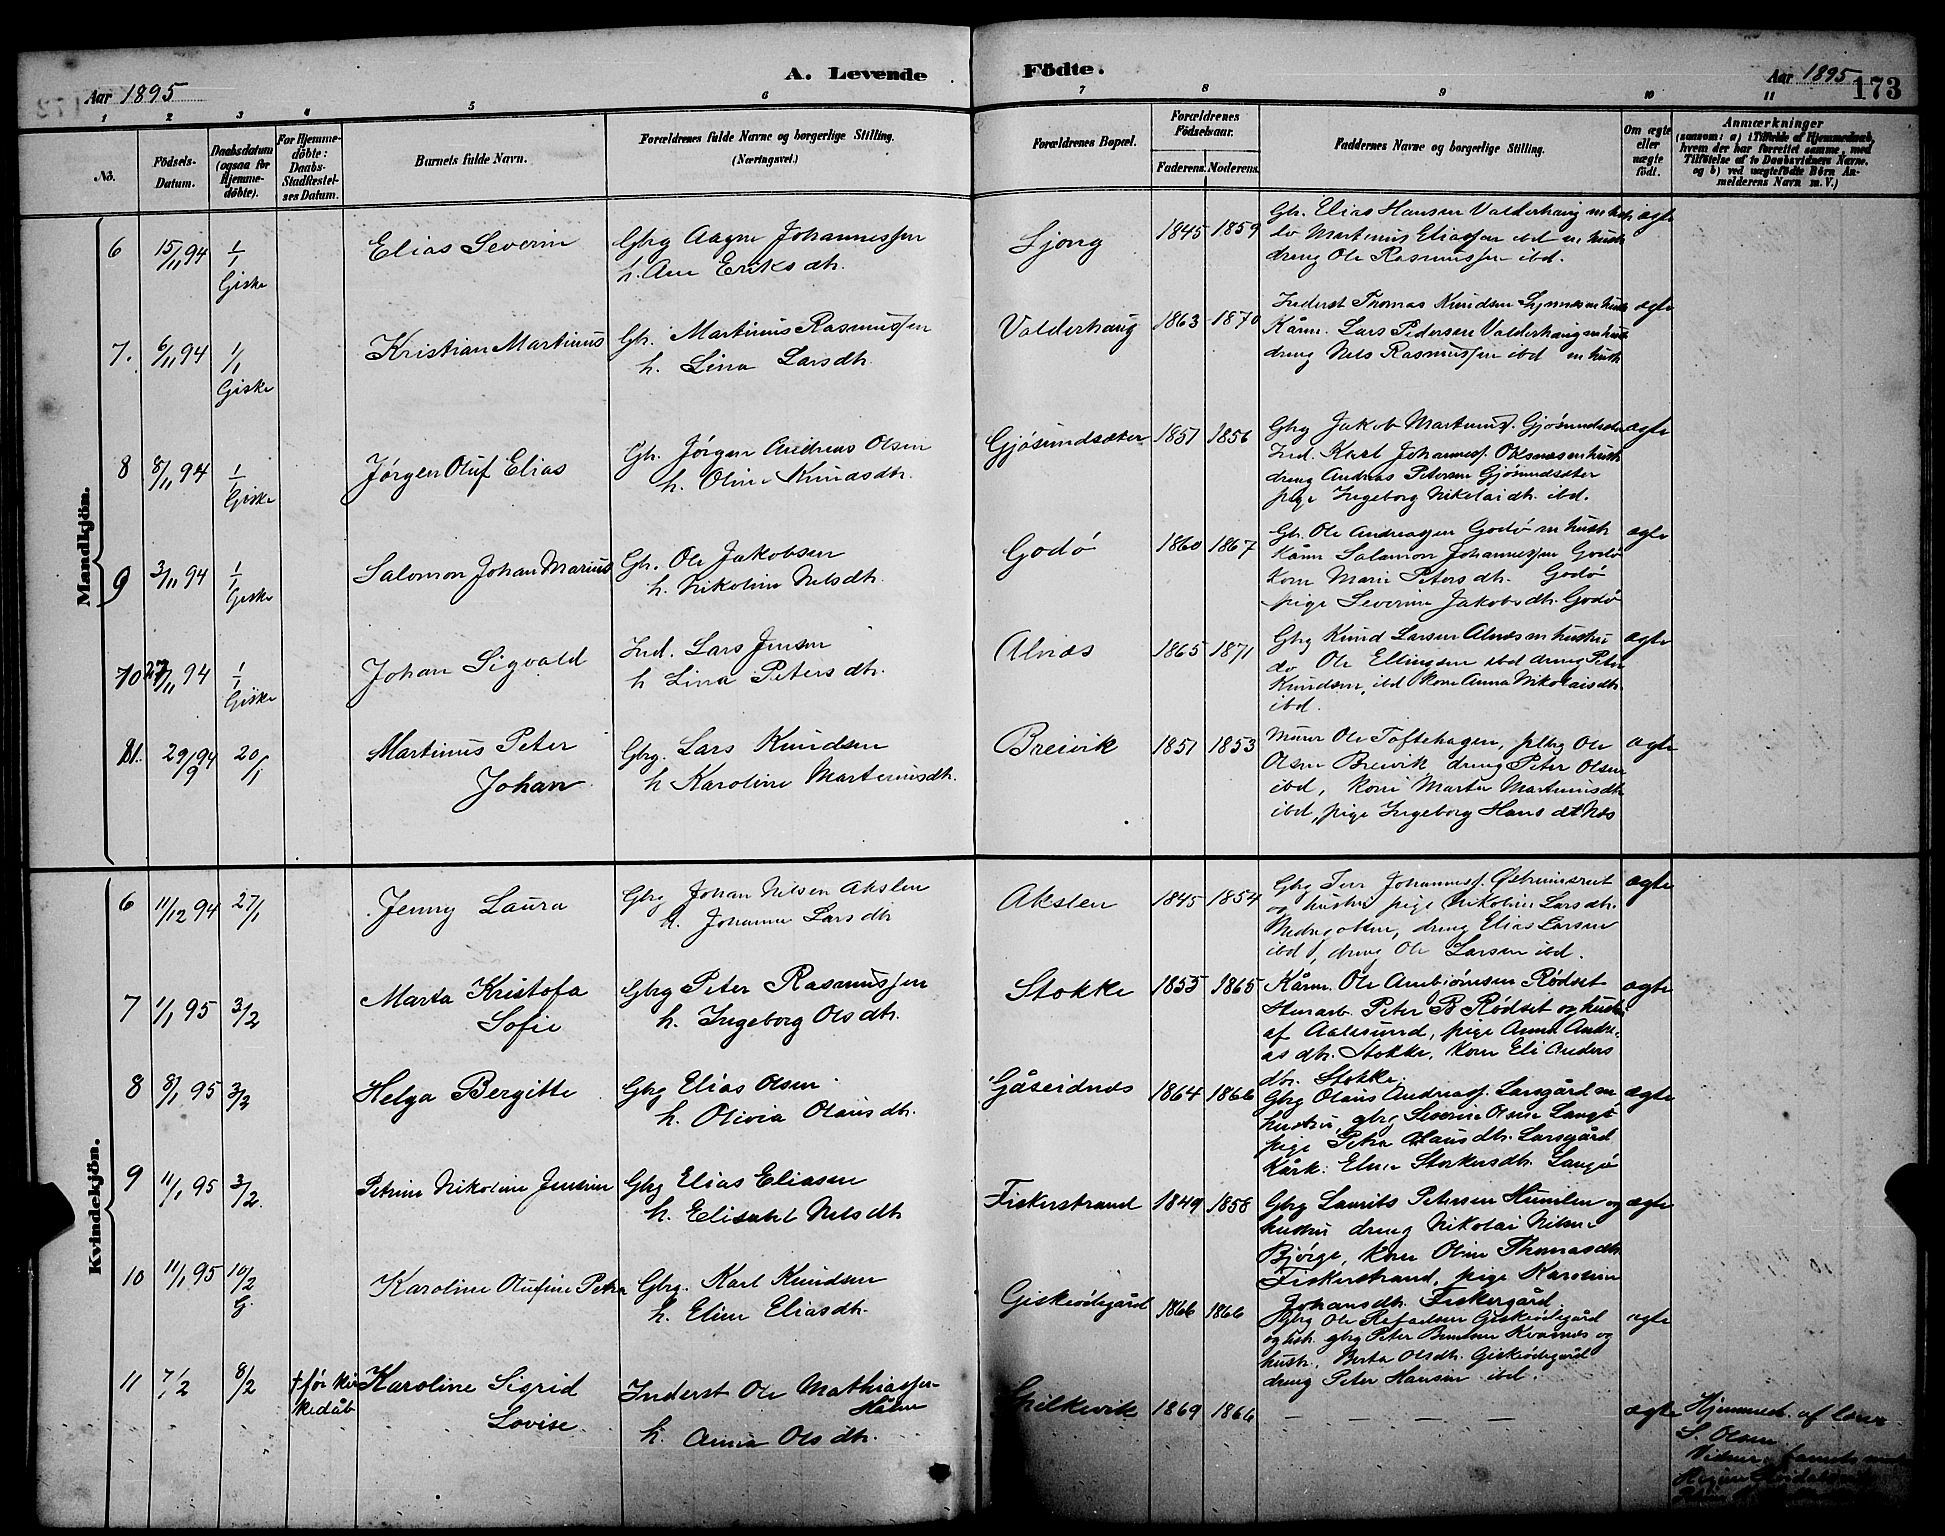 A. Levende Födte.
Aar 1895
Aar 1895
173
1 2 3 4 5 6 7 8 9 10 11
No.
Födsels-Datum.
Daabsdatum (ogsaa for Hjemmedöbte).
For Hjemmedöbte: Daabs-Stadfæstelses Datum.
Barnets fulde Navn.
Forældrenes fulde Navne og borgerlige Stilling. (Næringsvei.)
Forældrenes Bopæl.
Forældrenes Födselsaar.
Faderens. Moderens.
Faddernes Navne og borgerlige Stilling.
Om ægte eller uægte födt.
Anmærkninger
(saasom: a) i Tilfælde af Hjemmedaab, hvem der har forrettet samme, med Tilföielse af to Daabsvidners Navne, og b) ved uægtefödte Börn Anmelderens Navn m. V.)
Mandkjön.
6 15/11 94 1/1 Giske
Elias Severin
Gbrg Aagne Johannessen
h. Ane Eriksdtr.
Ljong 1845 1859
Gb. Elias Hansen Valderhaug m hust
do Martinus Eliassen ibd m hust
dreng Ole Rasmussen ibd.
ægte
7. 6/11 94 1/1 Giske
Kristian Martinus
Gb. Martinus Rasmussen
h. Lina Larsdtr.
Valderhaug 1863 1870
Inderst Thomas Knudsen m hust
Kårm. Lars Pedersen Valderhaug m hust
dreng Nels Rasmussen ibd m hust
ægte
8 8/11 94 1/1 Giske
Jørgen Oluf Elias
Gb. Jørgen Andreas Olsen
h. Oline Knudsdtr.
Gjøsundsæter 1851 1856
Gbrg Jakob Martinusf. Gjøsundsæter
Ind. Karl Johannesf. Oksnes m hust
dreng Andreas Petersen Gjøsundsæter
pige Ingeborg Nikolaidtr. ibd.
ægte
9 3/11 94 1/1 Giske
Salomon Johan Marius
Gb. Ole Jakobsen
h. Nikoline Nelsdtr.
Godø 1860 1867
Gb. Ole Andreassen Godø m hust
Kårm Salamon Johannessen Godø
Kone Marie Petersdtr. Godø
pige Severine Jakobsdtr. Godø
ægte
10 27/11 94 1/1 Giske
Johan Sigvald
Ind. Lars Jensen
h Lina Petersdtr.
Alnæs 1865 1871
Gbrg Knud Larsen Alnæs m hustru
do Ole Ellingsen ibd dreng Peter
Knudsen, ibd kone Anna Nikolaisdtr.
ibd.
ægte
11. 29/9 94 20/1
Martinus Peter
Johan
Gbrg. Lars Knudsen
h Karoline Martinusdtr.
Breivik 1851 1853
Murer Ole Toftehagen, Ole
Olsen Breivik dreng Peter Olsen
ibd, kone Marte Martinusdtr
ibd, pige Ingeborg Hansdtr Næs
ægte
Kvindekjön.
6 11/12 94 27/1
Jenny Laura
Gbrg Johan Nilsen Akslen
h. Johanne Larsdtr
Akslen 1845 1854
Gbrg Johannesf.
og hustru pige Nikoline Larsdtr.
dreng Elias Larsen
ibd, dreng Ole Larsen ibd.
ægte
7 1/1 95 3/2
Marta Kristofa
Sofie
Gbrg Peter Rasmussen
h. Ingeborg Olsdtr.
Stokke 1853 1865
Kårm. Ole Ambjørnsen Rødset
Stenarb. Peter B Rødset og hustru
af Aalesund, pige Anna Andre-
asdtr. Stokke, Kone Eli Anders
dtr. Stokke.
ægte
8 8/1 95 3/2
Helga Bergitte
Gbrg Elias Olsen
h. Olivia Olausdtr.
Gåseidnæs 1864 1866
Gbrg Olaus Andreasf. Larsgård m
hustru, gbrg Severin Olsen Langø
pige Petra Olausdtr. Larsgård
Kårk. Storkersdtr. Langø
ægte
9 11/1 95 3/2.
Petrine Nikoline Jensine
Gbrg Elias Eliasen
h. Elisabet Nelsdtr
Fiskerstrand 1849 1858
Gbrg Laurits Petersen Humlen og
hustru dreng Nikolai Nilsen
Bjørge, kone Oline Thomasdtr.
Fiskerstrand, pige Karoline
Johansdtr. Fiskergård
ægte
10 11/1 95 10/2 G.
Karoline Olufine Petra
Gbrg. Karl Knudsen
h. Eline Eliasdtr.
Giskeødegård 1866 1866
Gbrg Ole Refaelsen Giskeødegård
og hst. gbrg Peter Kvarnæs og
hustr. Berta Olsdtr. Giskeødegård
dreng Peter Hansen ibd.
ægte
11 7/2 8/2
† før kir
kedåb
Karoline Sigrid
Lovise
Inderst Ole Mathiassen
h. Anna Olsdtr.
1869 1866
— — — — —
ægte
Hjemmed. af
S. Olsen